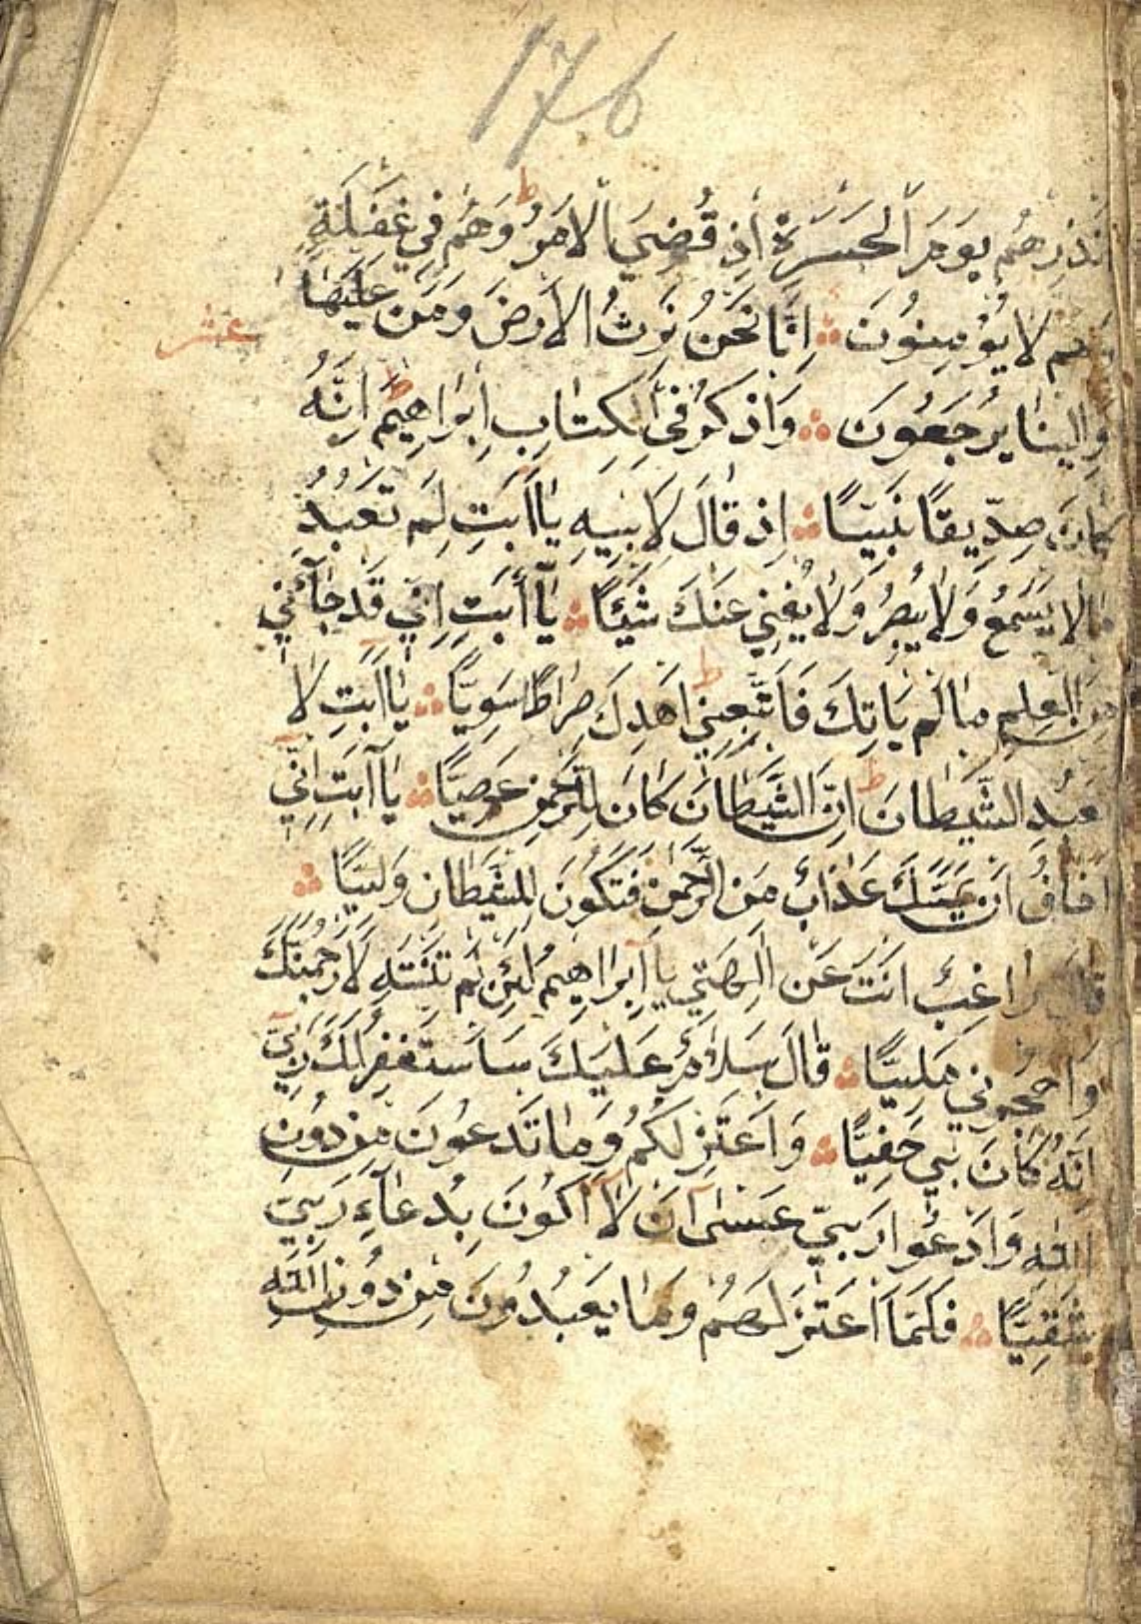 176
ط
اَنْذِرْهُمْ يَوْمَ الْحَسْرَةِ اِذْ قُضِيَ الْاَمْرُ وَهُمْ فِي غَفْلَةٍ
وَهُمْ لَا يُؤْمِنُونَ ۞ اِنَّا نَحْنُ نَرِثُ الْاَرْضَ وَمَنْ عَلَيْهَا
عشر
وَاِلَيْنَا يُرْجَعُونَ ۞ وَاذْكُرْ فِي الْكِتَابِ اِبْرَاهِيمَ ط اِنَّهُ
كَانَ صِدِّيقًا نَبِيًّا ۞ اِذْ قَالَ لِاَبِيهِ يَا اَبَتِ لِمَ تَعْبُدُ
مَا لَا يَسْمَعُ وَلَا يُبْصِرُ وَلَا يُغْنِي عَنْكَ شَيْئًا ۞ يَآ اَبَتِ اِنِّي قَدْ جَآءَنِي
مِنَ الْعِلْمِ مَا لَمْ يَاْتِكَ فَاتَّبِعْنِي ط اَهْدِكَ صِرَاطًا سَوِيًّا ۞ يَا اَبَتِ لَا
تَعْبُدِ الشَّيْطَانَ ط اِنَّ الشَّيْطَانَ كَانَ لِلرَّحْمٰنِ عَصِيًّا ۞ يَا اَبَتِ اِنِّي
اَخَافُ اَنْ يَمَسَّكَ عَذَابٌ مِنَ الرَّحْمٰنِ فَتَكُونَ لِلشَّيْطَانِ وَلِيًّا ۞
قَالَ اَرَاغِبٌ اَنْتَ عَنْ اٰلِهَتِي يَا اِبْرَاهِيمُ لَئِنْ لَمْ تَنْتَهِ لَاَرْجُمَنَّكَ
وَاهْجُرْنِي مَلِيًّا ۞ قَالَ سَلَامٌ عَلَيْكَ سَاَسْتَغْفِرُ لَكَ رَبِّي
اِنَّهُ كَانَ بِي حَفِيًّا ۞ وَاَعْتَزِلُكُمْ وَمَا تَدْعُونَ مِنْ دُونِ
اللّٰهِ وَاَدْعُوا رَبِّي عَسٰى اَنْ لَا اَكُونَ بِدُعَآءِ رَبِّي
شَقِيًّا ۞ فَلَمَّا اعْتَزَلَهُمْ وَمَا يَعْبُدُونَ مِنْ دُونِ اللّٰهِ